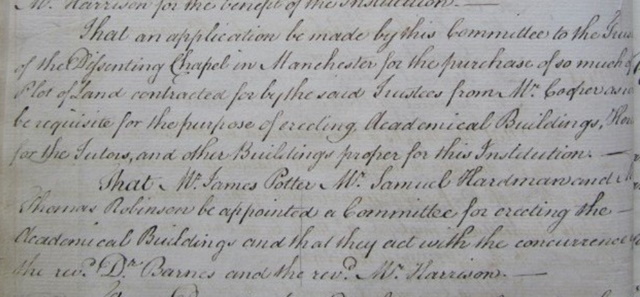 Mr. Harrison for the benefit of the Institution. —
That an application be made by this Committee to the
of the Dissenting Chapel in Manchester for the purchase of so much of
Plot of Land contracted for by the said Trustees from Mr. Cooper as
be requisite for the purpose of erecting Academical Buildings,
for the Tutors, and other Buildings proper for this Institution. —
That Mr. James Potter Mr. Samuel Hardman and
Thomas Robinson be appointed a Committee for erecting the —
Academical Buildings and that they act with the concurrence
the revd. Dr. Barnes and the revd. Mr. Harrison. —